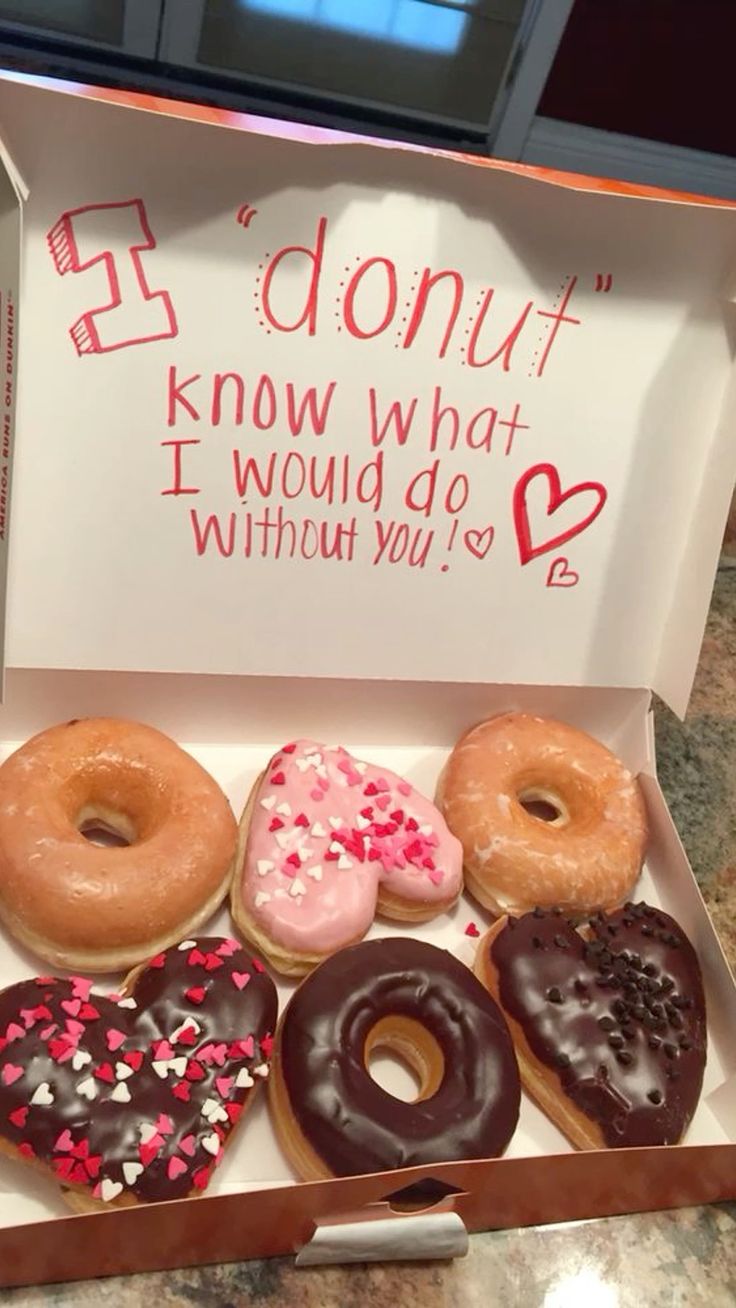 I "donut"
know what
I would do
without you!
AMERICA RUNS ON DUNKIN'